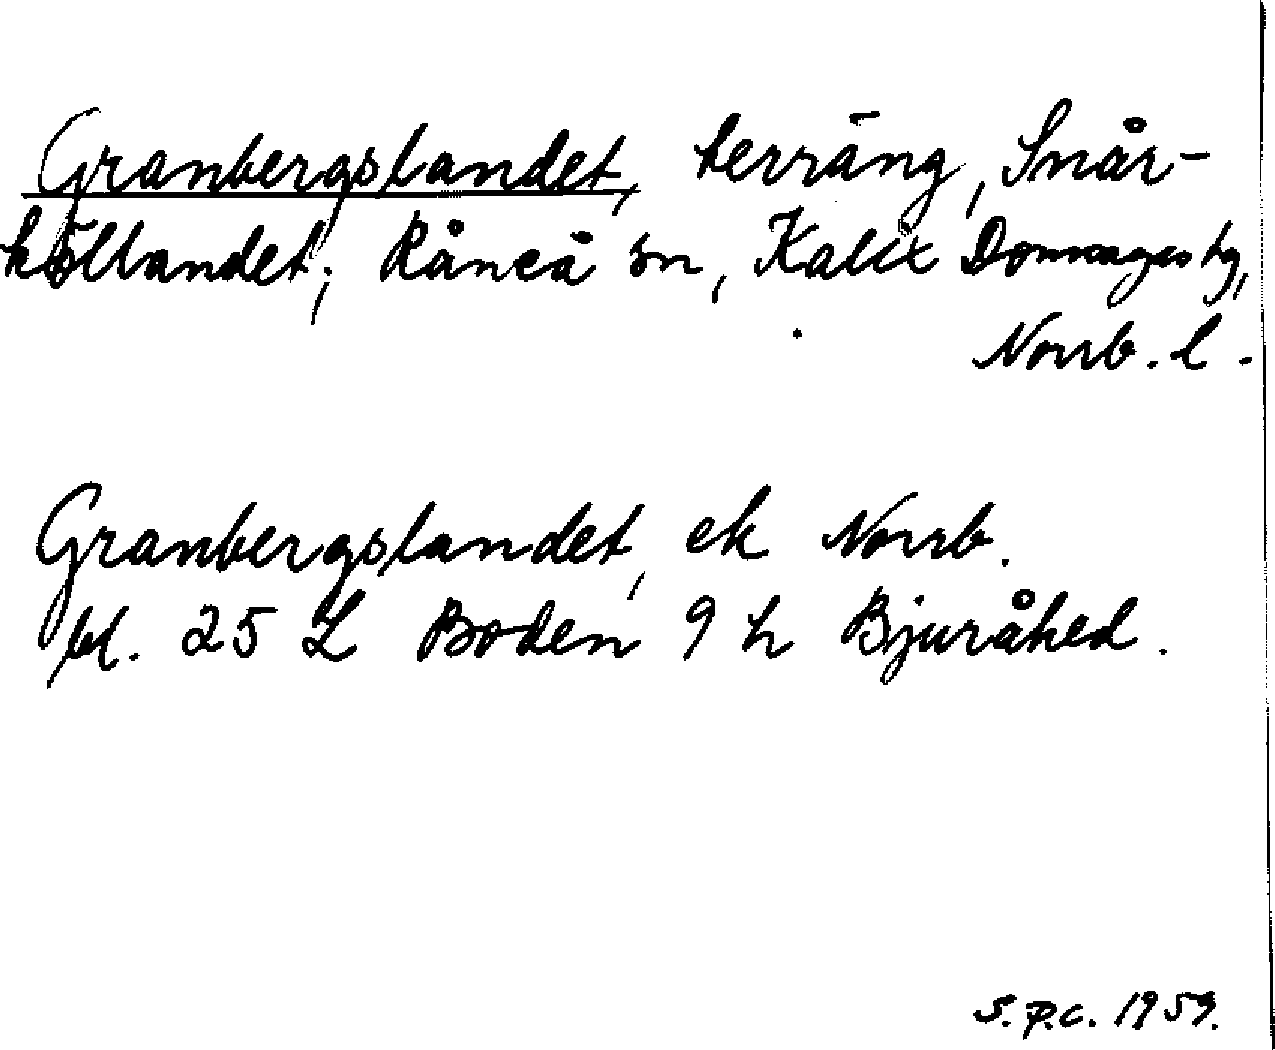 Granbergslandet, terräng, Snår-
köllandet, Råneå sn, Kalix Domsagas tg,
Norrb. l.
Granbergslandet, ek Norrb.
bl. 25 L Boden 9 h Bjuråhed.
S.P.C. 1959.